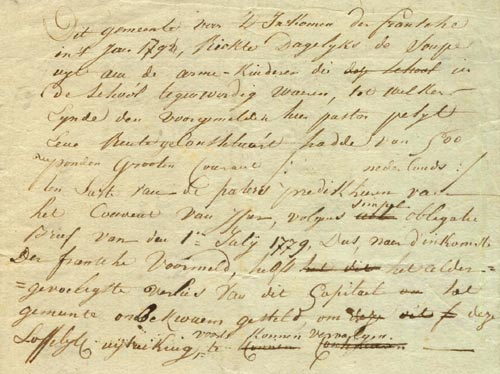 Dit gemeente van 't Inkomen der fransche
in 't Jaer 1794, Rickte Dagelyks de Soupe
uyt aen de arme-Kinderen die dese school in
de School tegenwordig waeren, tot welker
Eynde den voorgemelden heer pastor pe
Eene Rente geconstitueert hadde van 500
ponden Grooten Courant nederlands :
ten laste van de paters predikheeren van
het Couvent van Iper, volgens simpel obligatie
Brief van den 1en July 1779. Dus, naer d'inkomste
Der fransche Voormeld, het alder-
=gevoeligste verlies van dit Capitael tot
gemeente onbekwaem gesteld om deze
Loffelyke uytreiking, te voorts konnen vervolgen.